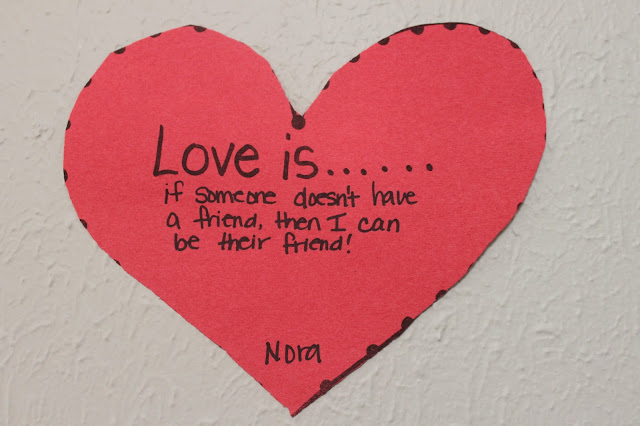 Love is......
if someone doesn't have
a friend, then I can
be their friend!
Nora